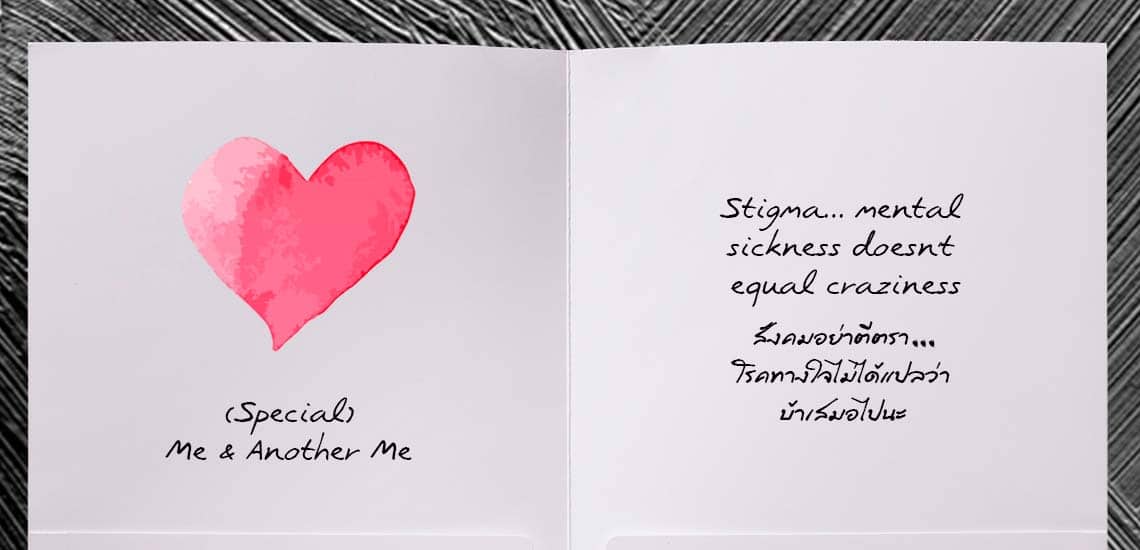 (Special)
Me & Another Me
Stigma... mental
sickness doesnt
equal craziness
สังคมอย่าตีตรา...
โรคทางใจไม่ได้แปลว่า
บ้าเสมอไปนะ